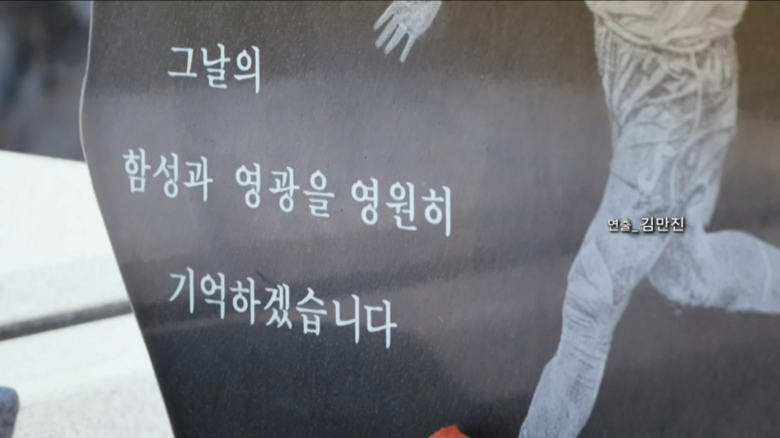 그날의
함성과 영광을 영원히
연출_김만진
기억하겠습니다